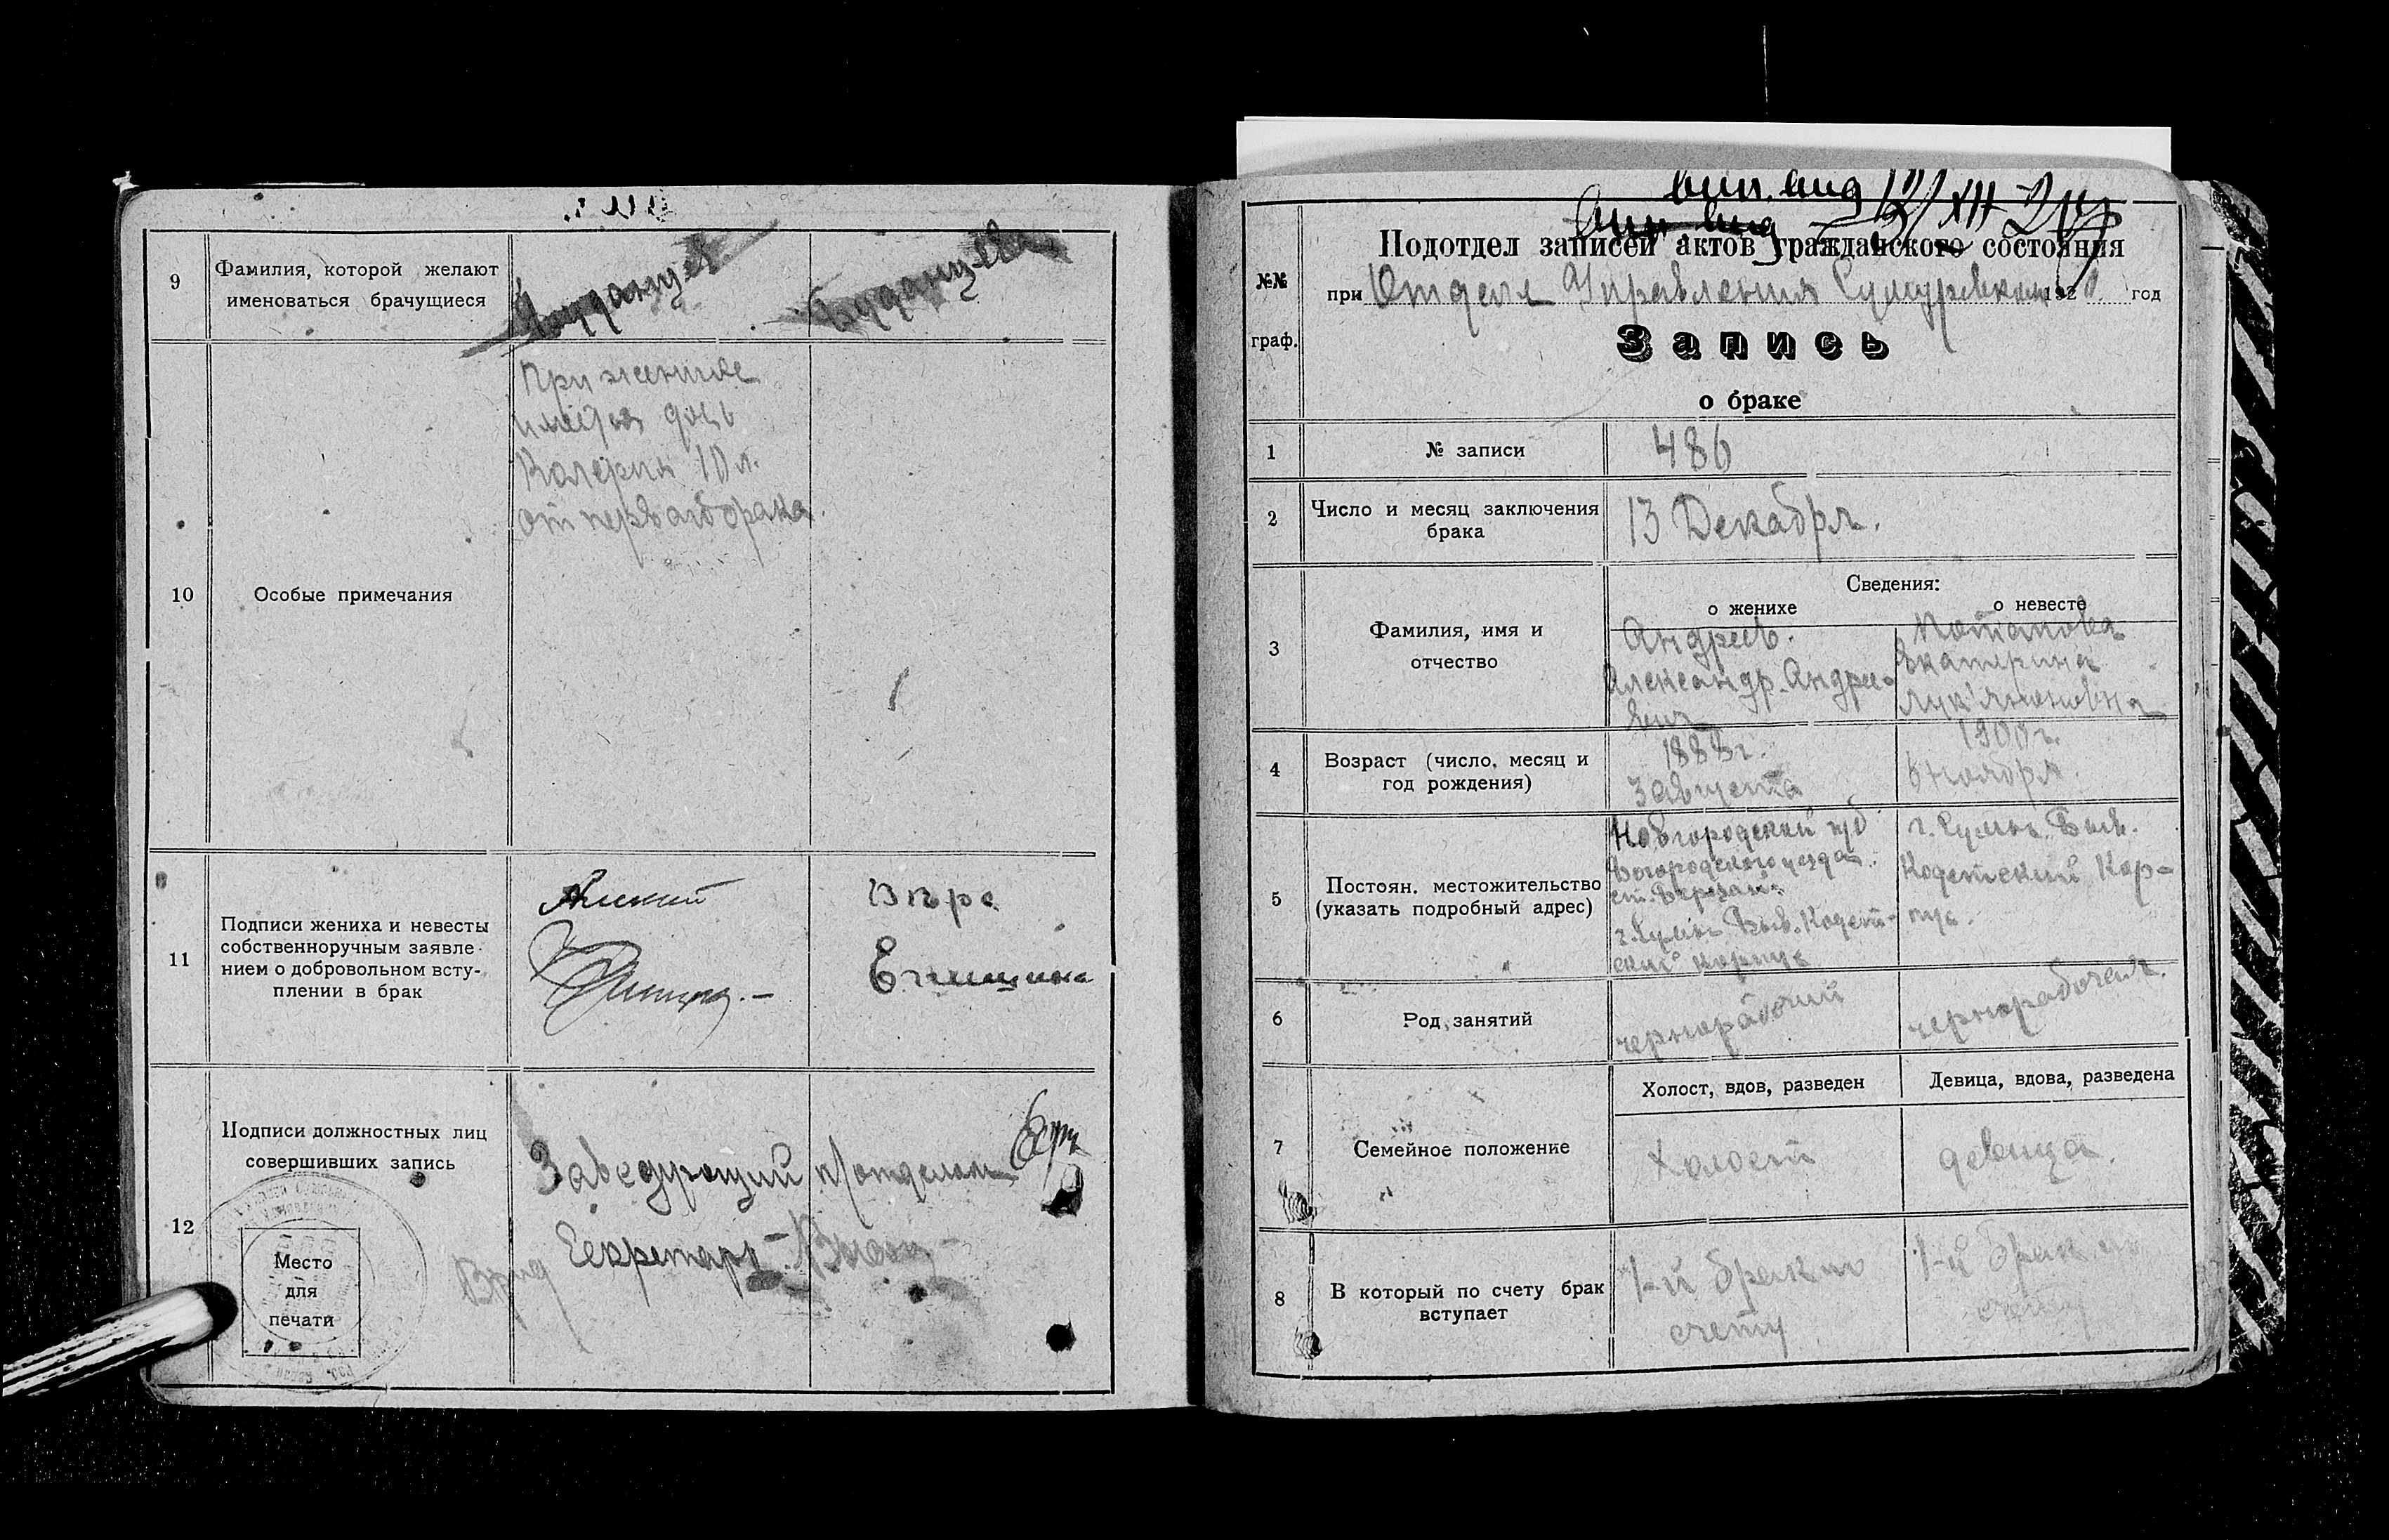 9
Фамилия, которой желают
именоваться брачущиеся
Буданцева
10
Особые примечания
При женихе
дочь
Валерия 10 л.
от первого брака.
11
Подписи жениха и невесты
собственноручным заявле-
нием о добровольном всту-
плении в брак
Вера
12
Подписи должностных лиц
совершивших запись
Место
для
печати
Заведующий п/отделом
Врид Секретарь
№№
граф.
Подотдел записей актов гражданского состояния
при Отделе Управления Сумском 192 год
Запись
о браке
1
№ записи
486
2
Число и месяц заключения
брака
13 Декабря.
3
Фамилия, имя и
отчество
Сведения:
о женихе
о невесте
Андреев.
Александр Андре-
евич
Потапова
Екатерина
Лук'яновна
4
Возраст (число, месяц и
год рождения)
1888 г.
3 августа
1900 г.
ноября
5
Постоян. местожительство
(указать подробный адрес)
Новгородский
г. Сумы Быв. Кадет-
ский корпус
г. Сумы. Быв.
Кадетский Кор-
пус.
6
Род занятий
чернорабочий
чернорабочая.
7
Семейное положение
Холост, вдов, разведен
Девица, вдова, разведена
холост
девица.
8
В который по счету брак
вступает
1-й брак по
счету
1-й брак по
счету